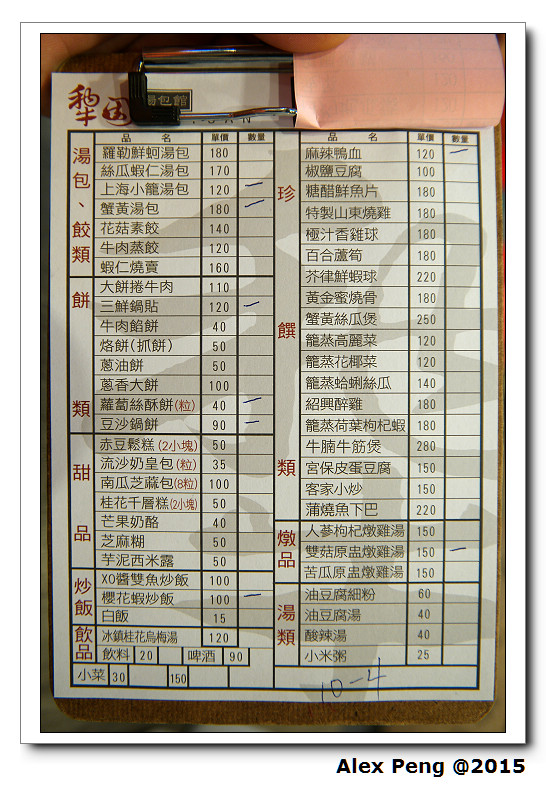 犂園湯包館
品名 單價 數量
湯包、餃類
羅勒鮮蚵湯包 180
絲瓜蝦仁湯包 170
上海小籠湯包 120 一
蟹黃湯包 180 一
花菇素餃 140
牛肉蒸餃 120
蝦仁燒賣 160
餅類
大餅捲牛肉 110
三鮮鍋貼 120 一
牛肉餡餅 40
烙餅(抓餅) 50
蔥油餅 50
蔥香大餅 100
蘿蔔絲酥餅(粒) 40 一
豆沙鍋餅 90 一
甜品
赤豆鬆糕(2小塊) 50
流沙奶皇包(粒) 35
南瓜芝蔴包(8粒) 100
桂花千層糕(2小塊) 50
芒果奶酪 40
芝麻糊 50
芋泥西米露 50
炒飯
XO醬雙魚炒飯 100
櫻花蝦炒飯 100 一
白飯 15
飲品
冰鎮桂花烏梅湯 120
飲料 20 啤酒 90
小菜 30 150
品名 單價 數量
珍饌類
麻辣鴨血 120 一
椒鹽豆腐 100
糖醋鮮魚片 180
特製山東燒雞 180
極汁香雞球 180
百合蘆筍 180
芥律鮮蝦球 220
黃金蜜燒骨 180
蟹黃絲瓜煲 250
籠蒸高麗菜 120
籠蒸花椰菜 120
籠蒸蛤蜊絲瓜 140
紹興醉雞 180
籠蒸荷葉枸杞蝦 180
牛腩牛筋煲 280
宮保皮蛋豆腐 150
客家小炒 150
蒲燒魚下巴 220
燉品
人蔘枸杞燉雞湯 150
雙菇原盅燉雞湯 150 一
苦瓜原盅燉雞湯 150
湯類
油豆腐細粉 60
油豆腐湯 40
酸辣湯 40
小米粥 25
10-4
Alex Peng @2015